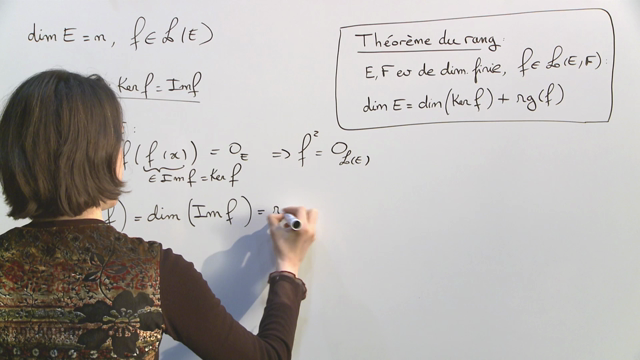 dim E = n, f ∈ ℒ(E)
Ker f = Im f
:
f(f(x)) = 0_E ⇒ f² = 0_ℒ(E)
∈ Im f = Ker f
f) = dim (Im f) =
Théorème du rang:
E, F ev de dim. finie, f ∈ ℒ(E, F):
dim E = dim(Ker f) + rg(f)